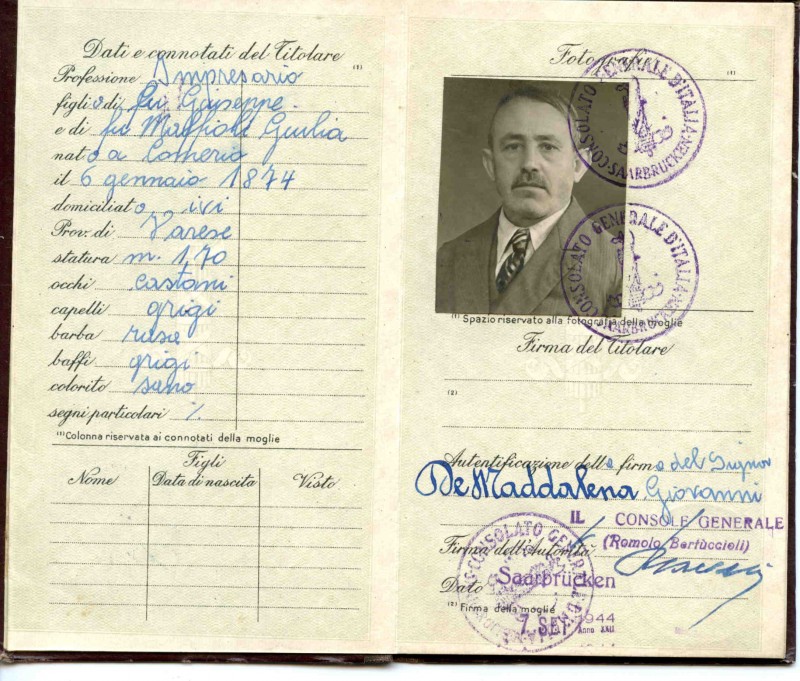 Dati e connotati del Titolare
(1)
Professione Impresario
figlio di fu Giuseppe
e di fu Maffioli Giulia
nato a Comerio
il 6 gennaio 1874
domiciliato ivi
Prov. di Varese
statura m. 1,70
occhi castani
capelli grigi
barba rasa
baffi grigi
colorito sano
segni particolari %
(1)Colonna riservata ai connotati della moglie
Figli
Nome Data di nascita Visto
Fotografia
(1)
CONSOLATO GENERALE D'ITALIA
SAARBRUCKEN
CONSOLATO GENERALE D'ITALIA
SAARBRUCKEN
(1) Spazio riservato alla fotografia della moglie
Firma del Titolare
(2)
Autentificazione della firma del Signor
De Maddalena Giovanni
IL CONSOLE GENERALE
Firma dell'Autorità (Romolo Bertuccioli)
CONSOLATO GENERALE
Data Saarbrücken
(2) Firma della moglie
7 SET 1944 Anno XXII